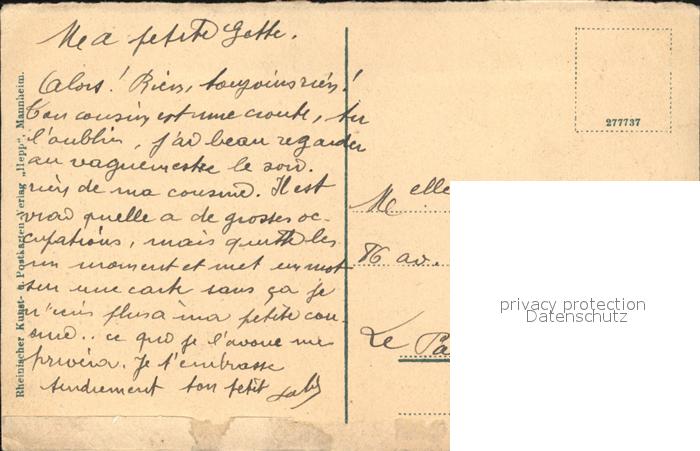 Ma petite Gotte.
Alors! Rien, toujours rien!
Ton cousin est une croute, tu
l'oublies, j'ai beau regarder
au vaguemestre le soir.
rien de ma cousine. Il est
vrai qu'elle a de grosses oc-
cupations, mais quitte les
un moment et met un mot
sur une carte sans ça je
n'écris plus à ma petite cou-
sine.. ce que je l'avoue me
privera. Je t'embrasse
tendrement ton petit
Rheinischer Kunst- u. Postkarten-Verlag „Hepp“, Mannheim.
277737
Melle
av.
Le Pa
privacy protection
Datenschutz